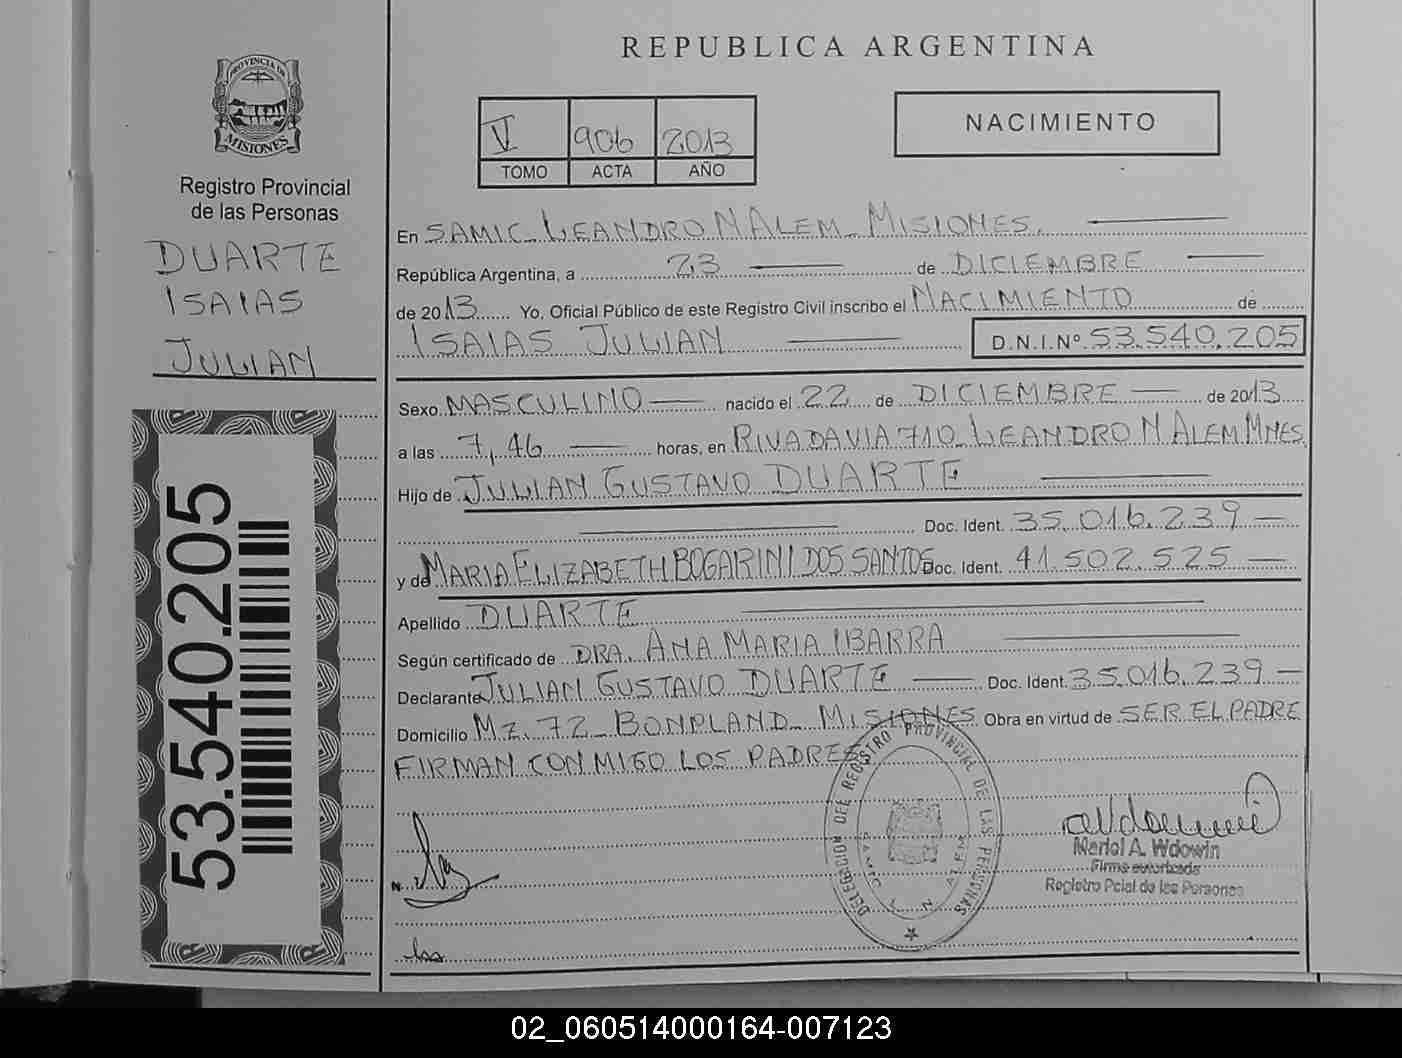 REPUBLICA ARGENTINA
PROVINCIA DE
MISIONES
Registro Provincial
de las Personas
DUARTE
ISAIAS
JULIAN
53.540.205
V 906 2013
TOMO ACTA AÑO
NACIMIENTO
En SAMIC LEANDRO N ALEM MISIONES.
República Argentina, a 23 de DICIEMBRE
de 2013 Yo, Oficial Público de este Registro Civil inscribo el NACIMIENTO de
ISAIAS JULIAN D.N.I.Nº 53.540.205
Sexo MASCULINO nacido el 22 de DICIEMBRE de 2013
a las 7,46 horas, en RIVADAVIA 710 LEANDRO N ALEM MNES
Hijo de JULIAN GUSTAVO DUARTE
Doc. Ident. 35.016.239
y de MARIA ELIZABETH BOGARINI DOS SANTOS Doc. Ident. 41.502.525
Apellido DUARTE
Según certificado de DRA. ANA MARIA IBARRA
Declarante JULIAN GUSTAVO DUARTE Doc. Ident. 35.016.239
Domicilio MZ. 72 BONPLAND MISIONES Obra en virtud de SER EL PADRE
FIRMAN CONMIGO LOS PADRES
DELEGACION DEL REGISTRO PROVINCIAL DE LAS PERSONAS
SAMIC L. N. ALEM
Mariel A. Wdowin
Firma autorizada
Registro Pcial de las Personas
02_060514000164-007123